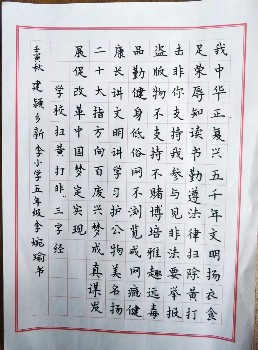 我中华正复兴五千年文明扬衣食
足荣辱知读书勤遵法律扫除黄打
击非你支持我参与见非法要举报
盗版物不支持不赌博培雅趣远毒
品勤健身低俗网不浏览戒网瘾健
康长讲文明讲学习护公物美名扬
二十大指方向百废兴梦成真谋发
展促改革中国梦定实现
学校扫黄打非三字经
壬寅秋 建颍乡新李小学五年级李婉瑜书